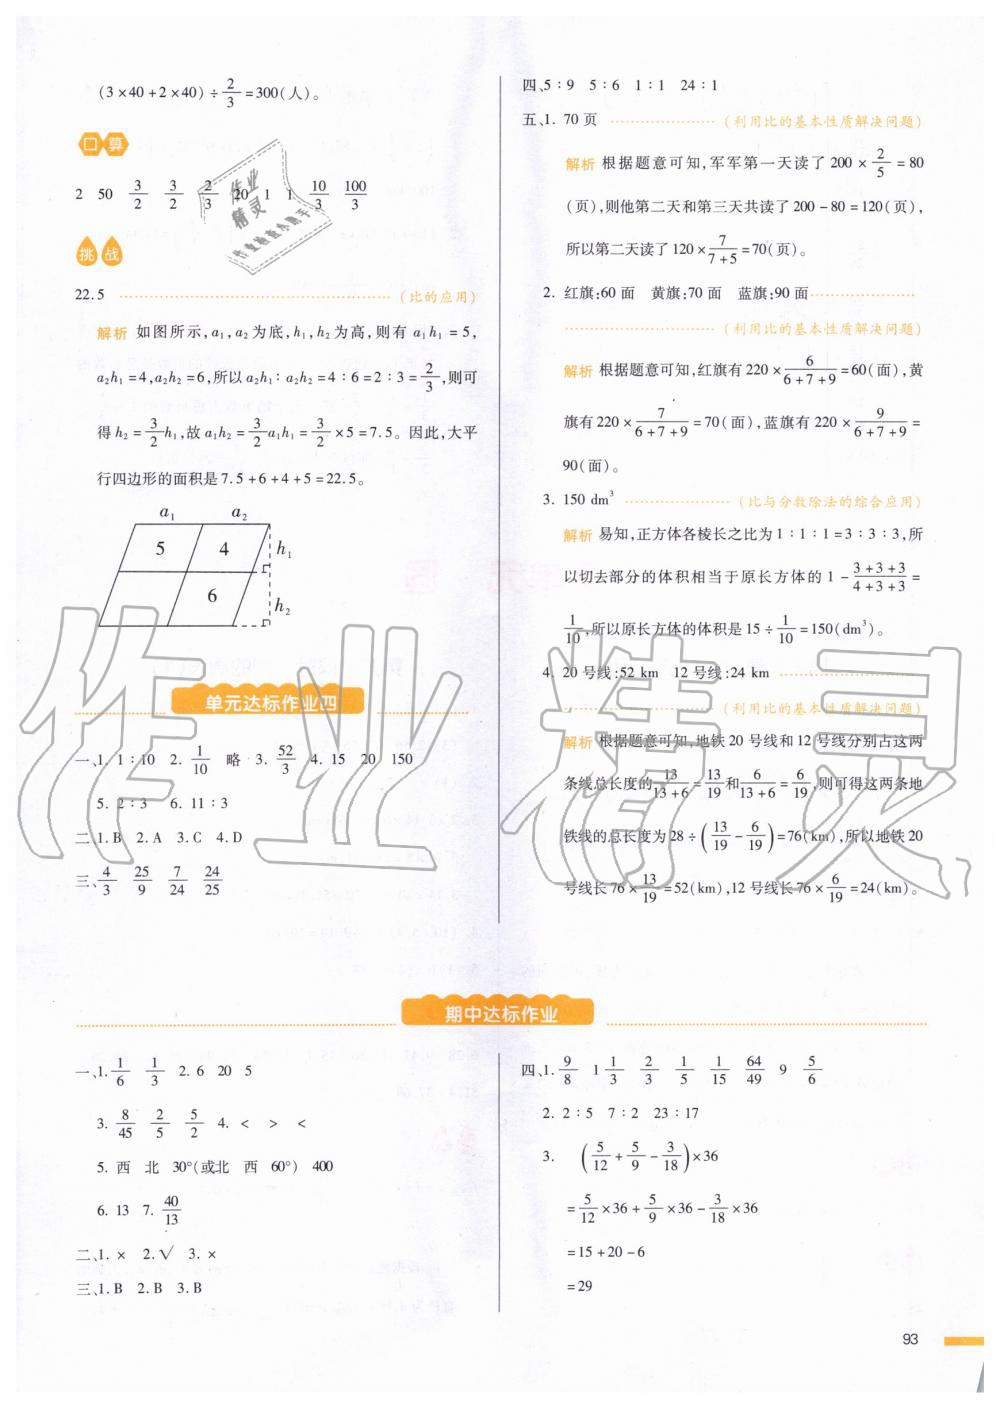 (3×40+2×40)÷2/3=300(人)。
口算
2 50 3/2 3/2 2/3 20 1 1 10/3 100/3
作业
精灵
挑战
22.5 (比的应用)
解析 如图所示,a₁,a₂为底,h₁,h₂为高,则有a₁h₁=5,
a₂h₁=4,a₂h₂=6,所以a₂h₁∶a₂h₂=4∶6=2∶3=2/3,则可
得h₂=3/2h₁,故a₁h₂=3/2a₁h₁=3/2×5=7.5。因此,大平
行四边形的面积是7.5+6+4+5=22.5。
a₁ a₂
5 4 h₁
6 h₂
单元达标作业四
一、1. 1∶10 2. 1/10 略 3. 52/3 4. 15 20 150
5. 2∶3 6. 11∶3
二、1. B 2. A 3. C 4. D
三、4/3 25/9 7/24 24/25
四、5∶9 5∶6 1∶1 24∶1
五、1. 70页 (利用比的基本性质解决问题)
解析 根据题意可知,军军第一天读了200×2/5=80
(页),则他第二天和第三天共读了200-80=120(页),
所以第二天读了120×7/(7+5)=70(页)。
2. 红旗:60面 黄旗:70面 蓝旗:90面
(利用比的基本性质解决问题)
解析 根据题意可知,红旗有220×6/(6+7+9)=60(面),黄
旗有220×7/(6+7+9)=70(面),蓝旗有220×9/(6+7+9)=
90(面)。
3. 150 dm³ (比与分数除法的综合应用)
解析 易知,正方体各棱长之比为1∶1∶1=3∶3∶3,所
以切去部分的体积相当于原长方体的1-(3+3+3)/(4+3+3)=
1/10,所以原长方体的体积是15÷1/10=150(dm³)。
4. 20号线:52 km 12号线:24 km
(利用比的基本性质解决问题)
解析 根据题意可知,地铁20号线和12号线分别占这两
条线总长度的13/(13+6)=13/19和6/(13+6)=6/19,则可得这两条地
铁线的总长度为28÷(13/19-6/19)=76(km),所以地铁20
号线长76×13/19=52(km),12号线长76×6/19=24(km)。
作业精灵
期中达标作业
一、1. 1/6 1/3 2. 6 20 5
3. 8/45 2/5 5/2 4. < > <
5. 西 北 30°(或北 西 60°) 400
6. 13 7. 40/13
二、1. × 2. √ 3. ×
三、1. B 2. B 3. B
四、1. 9/8 1 1/3 2/3 1/5 1/15 64/49 9 5/6
2. 2∶5 7∶2 23∶17
3. (5/12+5/9-3/18)×36
=5/12×36+5/9×36-3/18×36
=15+20-6
=29
93